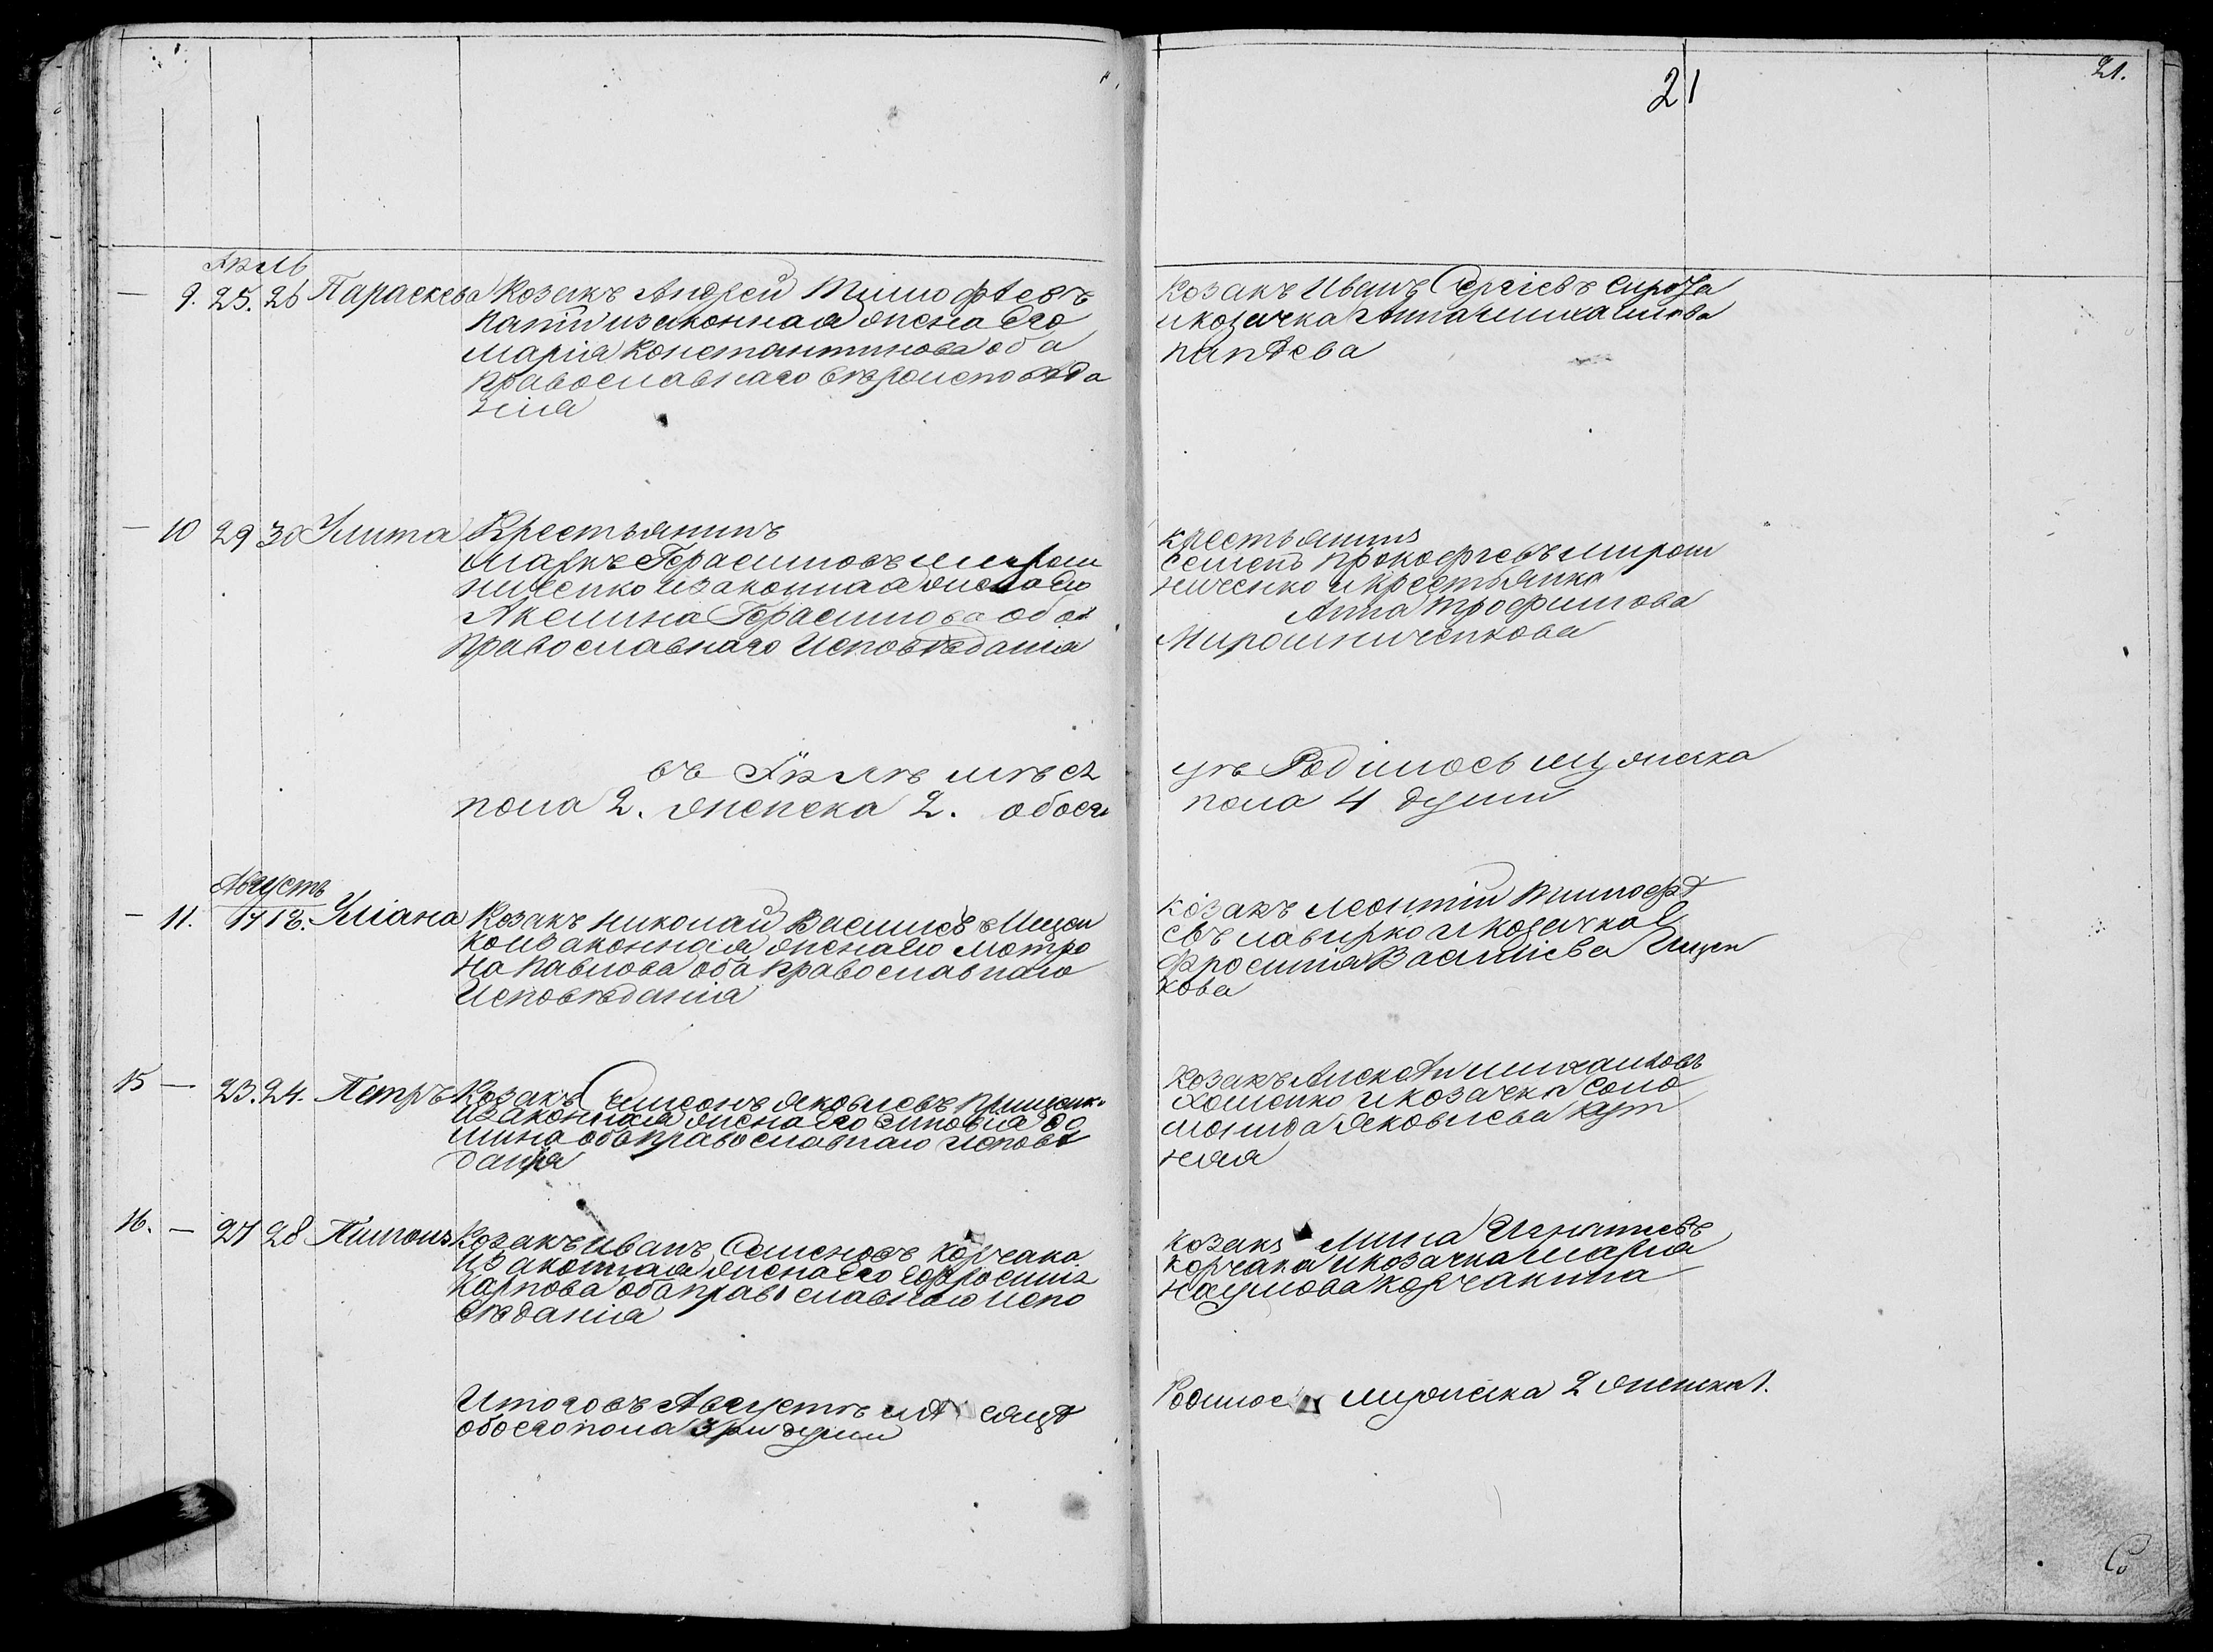 21
21.
Іюль
— 9. 25. 26 Параскева Козакъ Андрей Тимофѣевъ
изаконная жена Его
Марія Константинова оба
Православнаго вѣроисповѣда
нія
Козакъ Иванъ Сергіевъ Сирота
икозачка Анна Михаилова
— 10 29 30 Улита Крестьянинъ
Маркъ Герасимовъ Мирош
ниченко изаконная жена его
Акелина Герасимова оба
Православнаго Исповѣданія
крестьянинъ
Семенъ Прокофіевъ Мирош
ниченко икрестьянка
Анна Трофимова
Мирошниченкова
въ Іюлѣ мѣся
пола 2. женска 2. обоего
цѣ Родилось мужеска
пола 4 души
Августъ
— 11. 17 18. Уліана Козакъ Николай Васильевъ Ищен
коизаконная жена его Мотро
на Павлова оба православнаго
Исповѣданія
козакъ Леонтій Тимофѣ
евъ Лавирко и козачка Е
фросинія Василіева Ищен
кова
15 — 23. 24. Петръ Козакъ Симеонъ Яковлевъ
изаконная жена Его
мина оба православнаго исповѣ
данія
Козакъ Алексѣй Михаиловъ
хоменко и козачка Соло
монида Яковлева
16. — 27 28 Пимонъ Козакъ Иванъ Семеновъ Корчака
изаконная жена Его Ефросинія
Карпова оба православнаго испо
вѣданія
козакъ Мина Игнатіевъ
Корчака икозачка Марія
Наумова Корчакина
Итого въ Августѣ мѣсяцѣ
обоего пола 3 ри души
Родилось мужеска 2 женска 1.